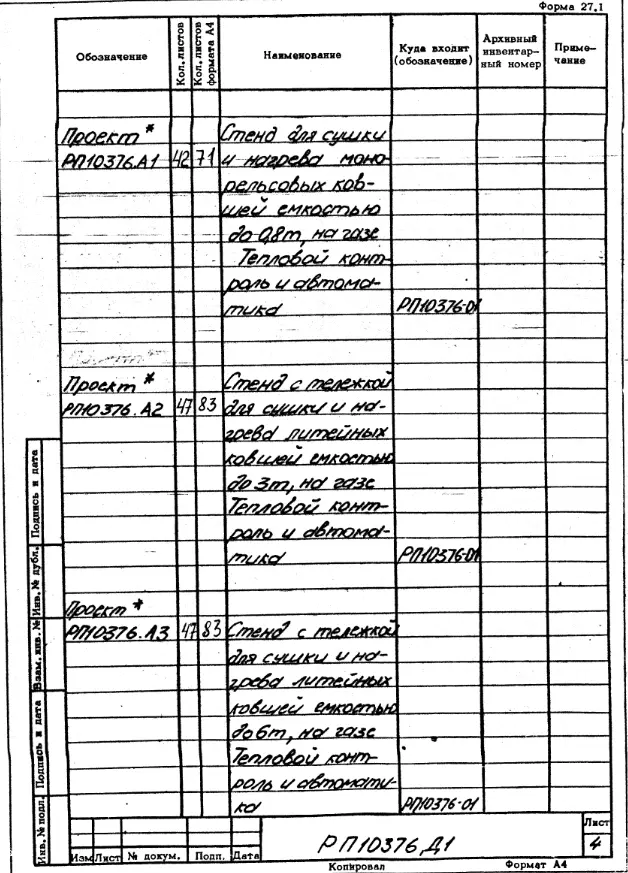 Форма 27.1
Обозначение
Кол. листов
Кол. листов формата А4
Наименование
Куда входит (обозначение)
Архивный инвентар-
ный номер
Приме-
чание
Проект * Стенд для сушки
РП10376.А1 42 71 и нагрева моно-
рельсовых ков-
шей емкостью
до 0,8т, на газе
Тепловой конт-
роль и автома-
тика РП10376-01
Проект * Стенд с тележкой
РП10376.А2 47 83 для сушки и на-
грева литейных
ковшей емкостью
до 3т, на газе
Тепловой конт-
роль и автома-
тика РП10376-01
Проект *
РП10376.А3 47 83 Стенд с тележкой
для сушки и на-
грева литейных
ковшей емкостью
до 6т, на газе
Тепловой конт-
роль и автомати-
ка РП10376-01
Инв. № подл. Подпись и дата Взам. инв. № Инв. № дубл. Подпись и дата
Изм Лист № докум. Подп. Дата
РП10376.Д1
Лист
4
Копировал Формат А4